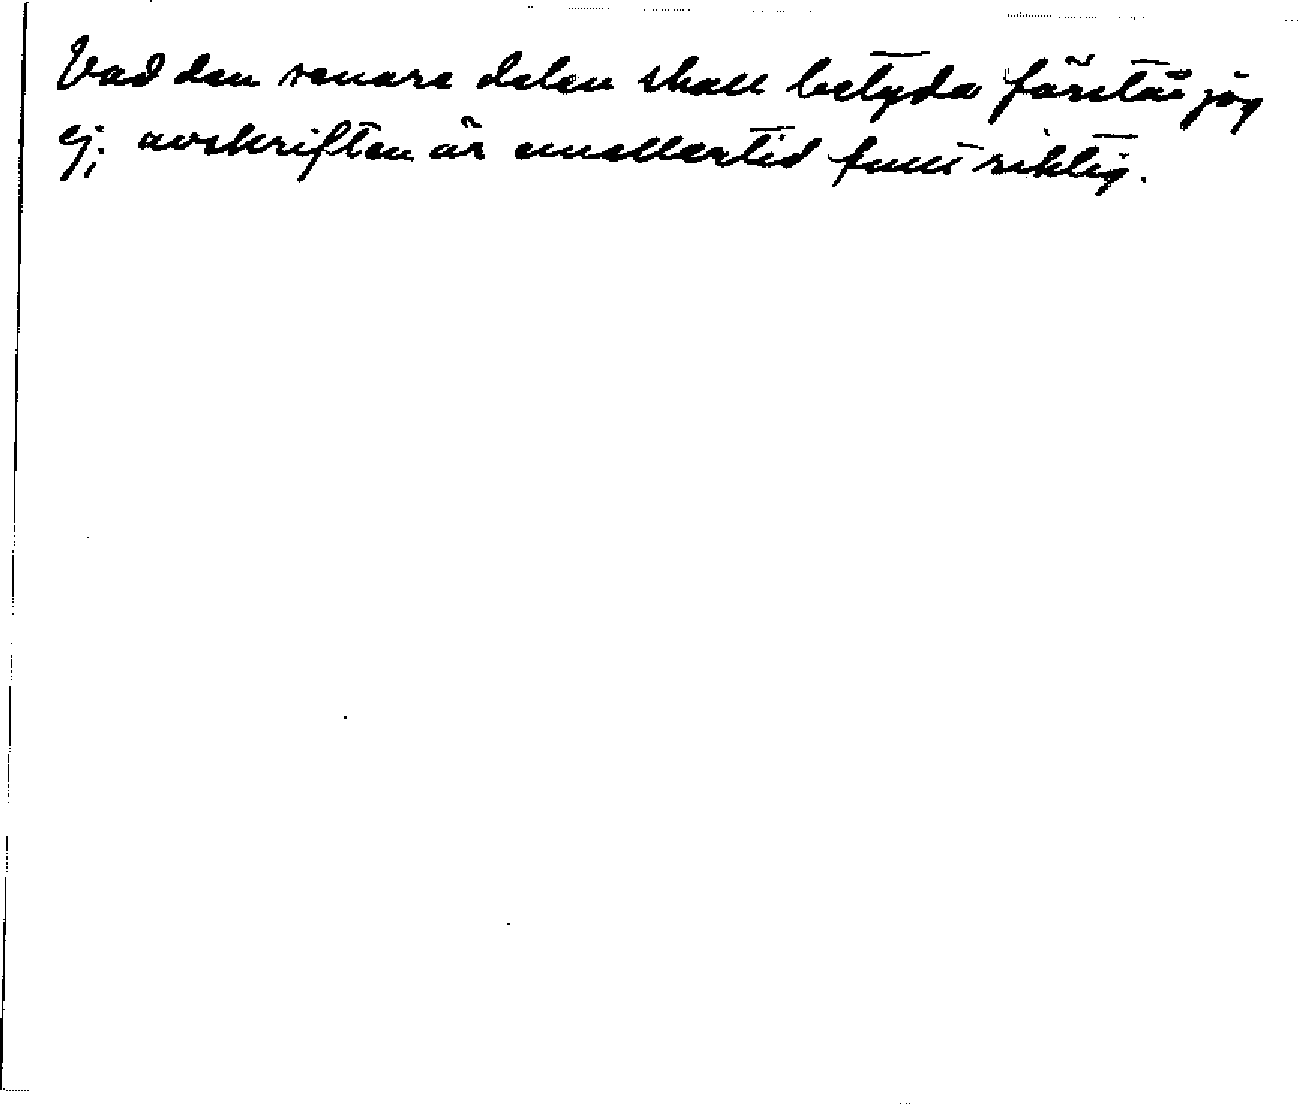 Vad den senare delen skall betyda förstår jag
ej; avskriften är emellertid fullt riktig.